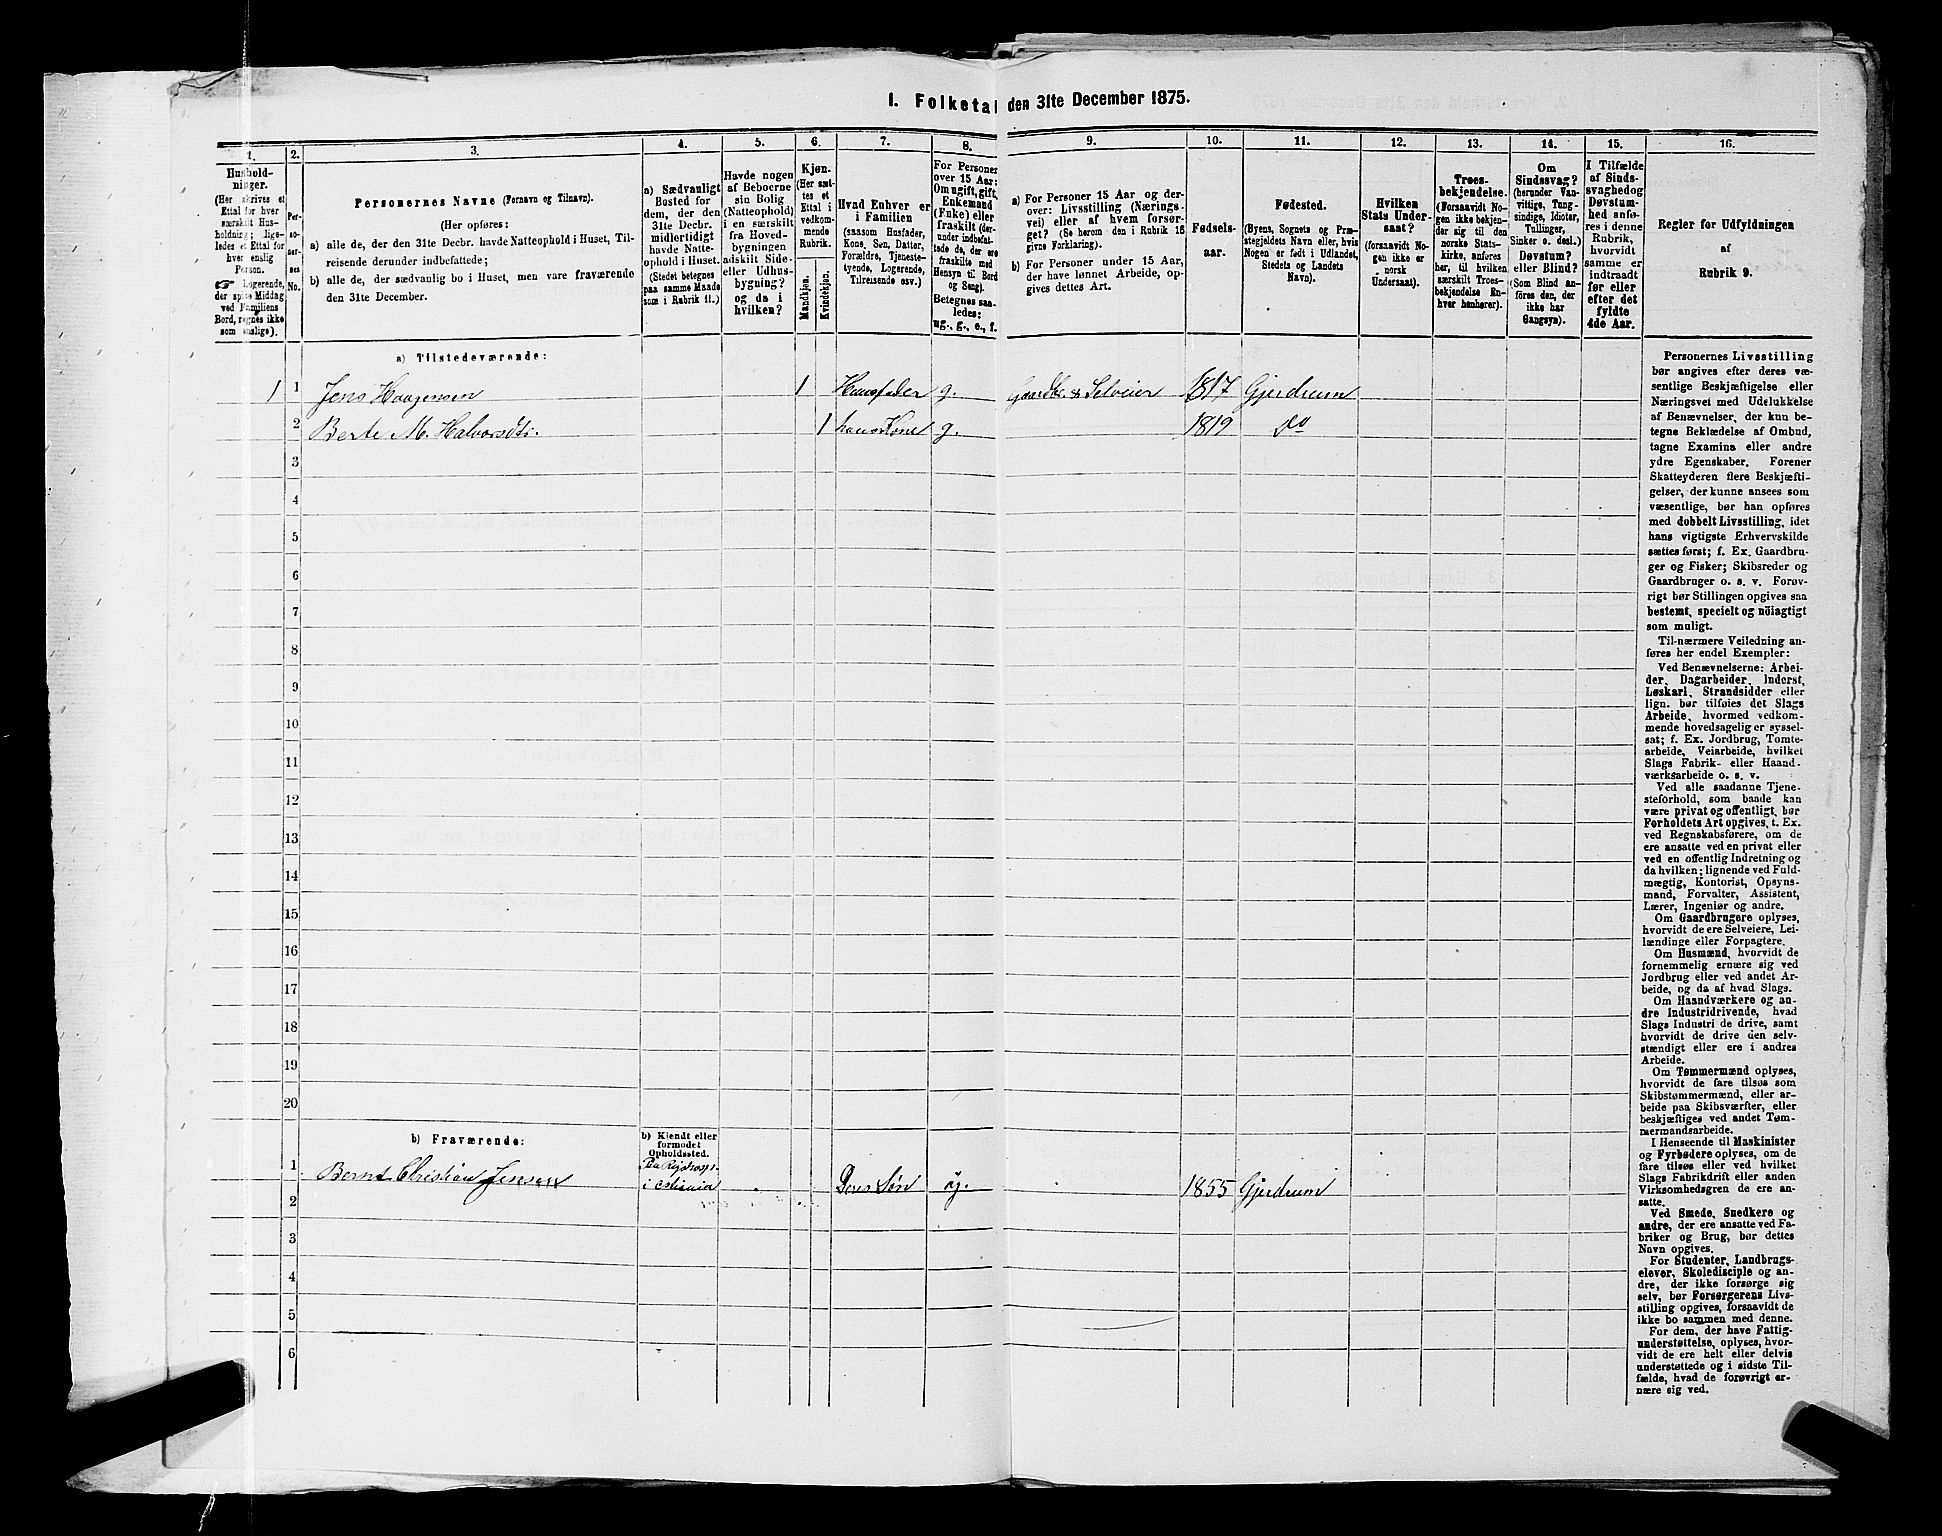 1. Folketal den 31te December 1875.
1.
2.
3.
4.
5.
6.
7.
8.
9.
10.
11.
12.
13.
14.
15.
16.
Husholdninger.
(Her skrives et
Ettal for hver
særskilt Husholdning; ligeledes
et Ettal for
hver enslig
Person.
☞ Logerende,
der spise Middag
ved Familiens
Bord, regnes ikke
som enslige).
Personernes
No.
Personernes Navne (Fornavn og Tilnavn).
(Her opføres:
a) alle de, der den 31te Decbr. havde Natteophold i Huset, Tilreisende
derunder indbefattede;
b) alle de, der sædvanlig bo i Huset, men vare fraværende
den 31te December.
a) Sædvanligt
Bosted for
dem, der den
31te Decbr.
midlertidigt
havde Natteophold
i Huset.
(Stedet betegnes
paa samme Maade
som i Rubrik 11.)
Havde nogen
af Beboerne
sin Bolig
(Natteophold)
i en særskilt
fra Hovedbygningen
adskilt Side-
eller Udhusbygning?
og da i
hvilken?
Kjøn.
(Her sættes
et
Ettal i
vedkommende
Rubrik.
Mandkjøn.
Kvindekjøn.
Hvad Enhver er
i Familien
(saasom Husfader,
Kone, Søn, Datter,
Forældre, Tjenestetyende,
Logerende,
Tilreisende osv.)
For Personer
over 15 Aar:
Om ugift, gift,
Enkemand
(Enke) eller
fraskilt (derunder
indbefattede
de, der ere
fraskilte med
Hensyn til Bord
og Seng).
Betegnes saaledes:
ug., g., e., f.
a) For Personer 15 Aar og derover:
Livsstilling (Næringsvei)
eller af hvem forsørget?
(Se herom den i Rubrik 16
givne Forklaring).
b) For Personer under 15 Aar,
der have lønnet Arbeide, opgives
dettes Art.
Fødselsaar.
Fødested.
(Byens, Sognets og Præstegjeldets
Navn eller, hvis
Nogen er født i Udlandet,
Stedets og Landets
Navn).
Hvilken
Stats Undersaat?
(forsaavidt Nogen
ikke er
norsk
Undersaat).
Troesbekjendelse.
(Forsaavidt Nogen
ikke bekjender
sig til den
norske Statskirke,
anføres
her, til hvilken
særskilt Troesbekjendelse
Enhver
henhører).
Om
Sindssvag?
(herunder Vanvittige,
Tungsindige,
Idioter,
Tullinger,
Sinker o. desl.)
Døvstum?
eller Blind?
(Som Blind anføres
den, der
ikke har
Gangsyn).
I Tilfælde
af Sindssvaghed
og
Døvstumhed
anføres
i denne
Rubrik,
hvorvidt
samme er
indtraadt
før eller
efter det
fyldte
4de Aar.
Regler for Udfyldningen
af
Rubrik 9.
a) Tilstedeværende:
1 1 Jens Haagensen 1 Huusfader g. Gaardbr. & Selveier 1817 Gjerdrum
2 Berte M. Halvorsdtr. 1 hans Kone g. 1819 do
3
4
5
6
7
8
9
10
11
12
13
14
15
16
17
18
19
20
b) Fraværende:
b) Kjendt eller
formodet
Opholdssted.
1 Bernt Christian Jensen i Deres Søn ug. 1855 Gjerdrum
2
3
4
5
6
Personernes Livsstilling
bør angives efter deres væsentlige
Beskjæftigelse eller
Næringsvei med Udelukkelse
af Benævnelser, der kun betegne
Beklædelse af Ombud,
tagne Examina eller andre
ydre Egenskaber. Forener
Skatteyderen flere Beskjæftigelser,
der kunne ansees som
væsentlige, bør han opføres
med dobbelt Livsstilling, idet
hans vigtigste Erhvervskilde
sættes først; f. Ex. Gaardbruger
og Fisker; Skibsreder og
Gaardbruger o. s. v. Forøvrigt
bør Stillingen opgives saa
bestemt, specielt og nöiagtigt
som muligt.
Til nærmere Veiledning anføres
her endel Exempler:
Ved Benævnelserne: Arbeider,
Dagarbeider, Inderst,
Løskarl, Strandsidder eller
lign. bør tilføies det Slags
Arbeide, hvormed vedkommende
hovedsagelig er sysselsat;
f. Ex. Jordbrug, Tomtearbeide,
Veiarbeide, hvilket
Slags Fabrik- eller Haandværksarbeide
o. s. v.
Ved alle saadanne Tjenesteforhold,
som baade kan
være privat og offentligt, bør
Forholdets Art opgives, t. Ex.
ved Regnskabsførere, om de
ere ansatte ved en privat eller
ved en offentlig Indretning og
da hvilken; lignende ved Fuldmægtig,
Kontorist, Opsynsmand,
Forvalter, Assistent,
Lærer, Ingeniør og andre.
Om Gaardbrugere oplyses,
hvorvidt de ere Selveiere, Leilændinge
eller Forpagtere.
Om Husmænd, hvorvidt de
fornemmelig ernære sig ved
Jordbrug eller ved andet Arbeide,
og da af hvad Slags.
Om Haandværkere og andre
Industridrivende, hvad
Slags Industri de drive, samt
hvorvidt de drive den selvstændigt
eller ere i andres
Arbeide.
Om Tømmermænd oplyses,
hvorvidt de fare tilsøs som
Skibstømmermænd, eller arbeide
paa Skibsværfter, eller
beskjæftiges ved andet Tømmermandsarbeide.
I Henseende til Maskinister
og Fyrbødere oplyses, om de
fare tilsøs eller ved hvilket
Slags Fabrikdrift eller anden
Virksomhedsgren de ere ansatte.
Ved Smede, Snedkere og
andre, der ere ansatte ved Fabriker
og Brug, bør dettes
Navn opgives.
For Studenter, Landbrugselever,
Skoledisciple og andre,
der ikke forsørge sig
selv, bør Forsørgerens Livsstilling
opgives, forsaavidt de
ikke bo sammen med denne.
For dem, der have Fattigunderstøttelse,
oplyses, hvorvidt
de ere helt eller delvis
understøttede og i sidste Tilfælde,
hvad de forøvrigt ernære
sig ved.